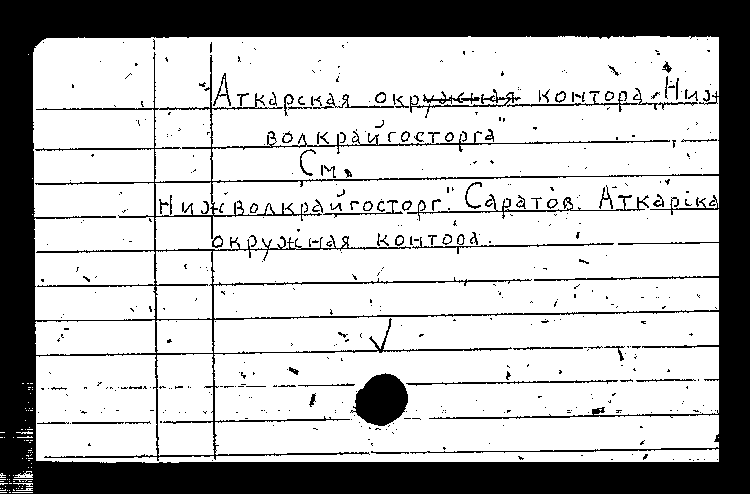 Аткарская окружная контора „Ниж
волкрайгосторга"
См.
Нижволкрайгосторг". Саратов. Аткарска
окружная контора.